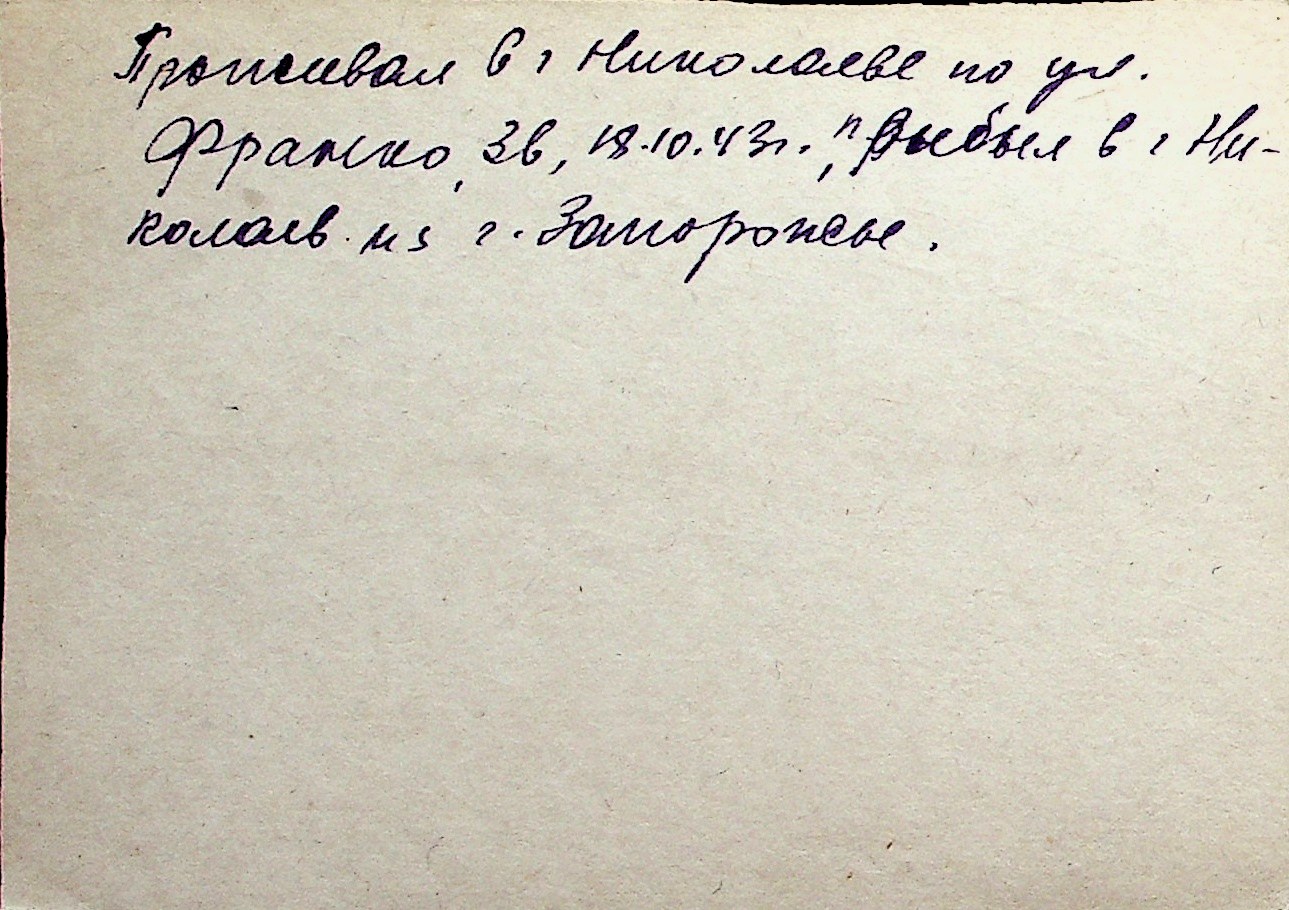 Проживал в г Николаеве по ул.
Франко, 3в, 18.10.43г., прибыл в г Ни-
колаев из г. Запорожье.